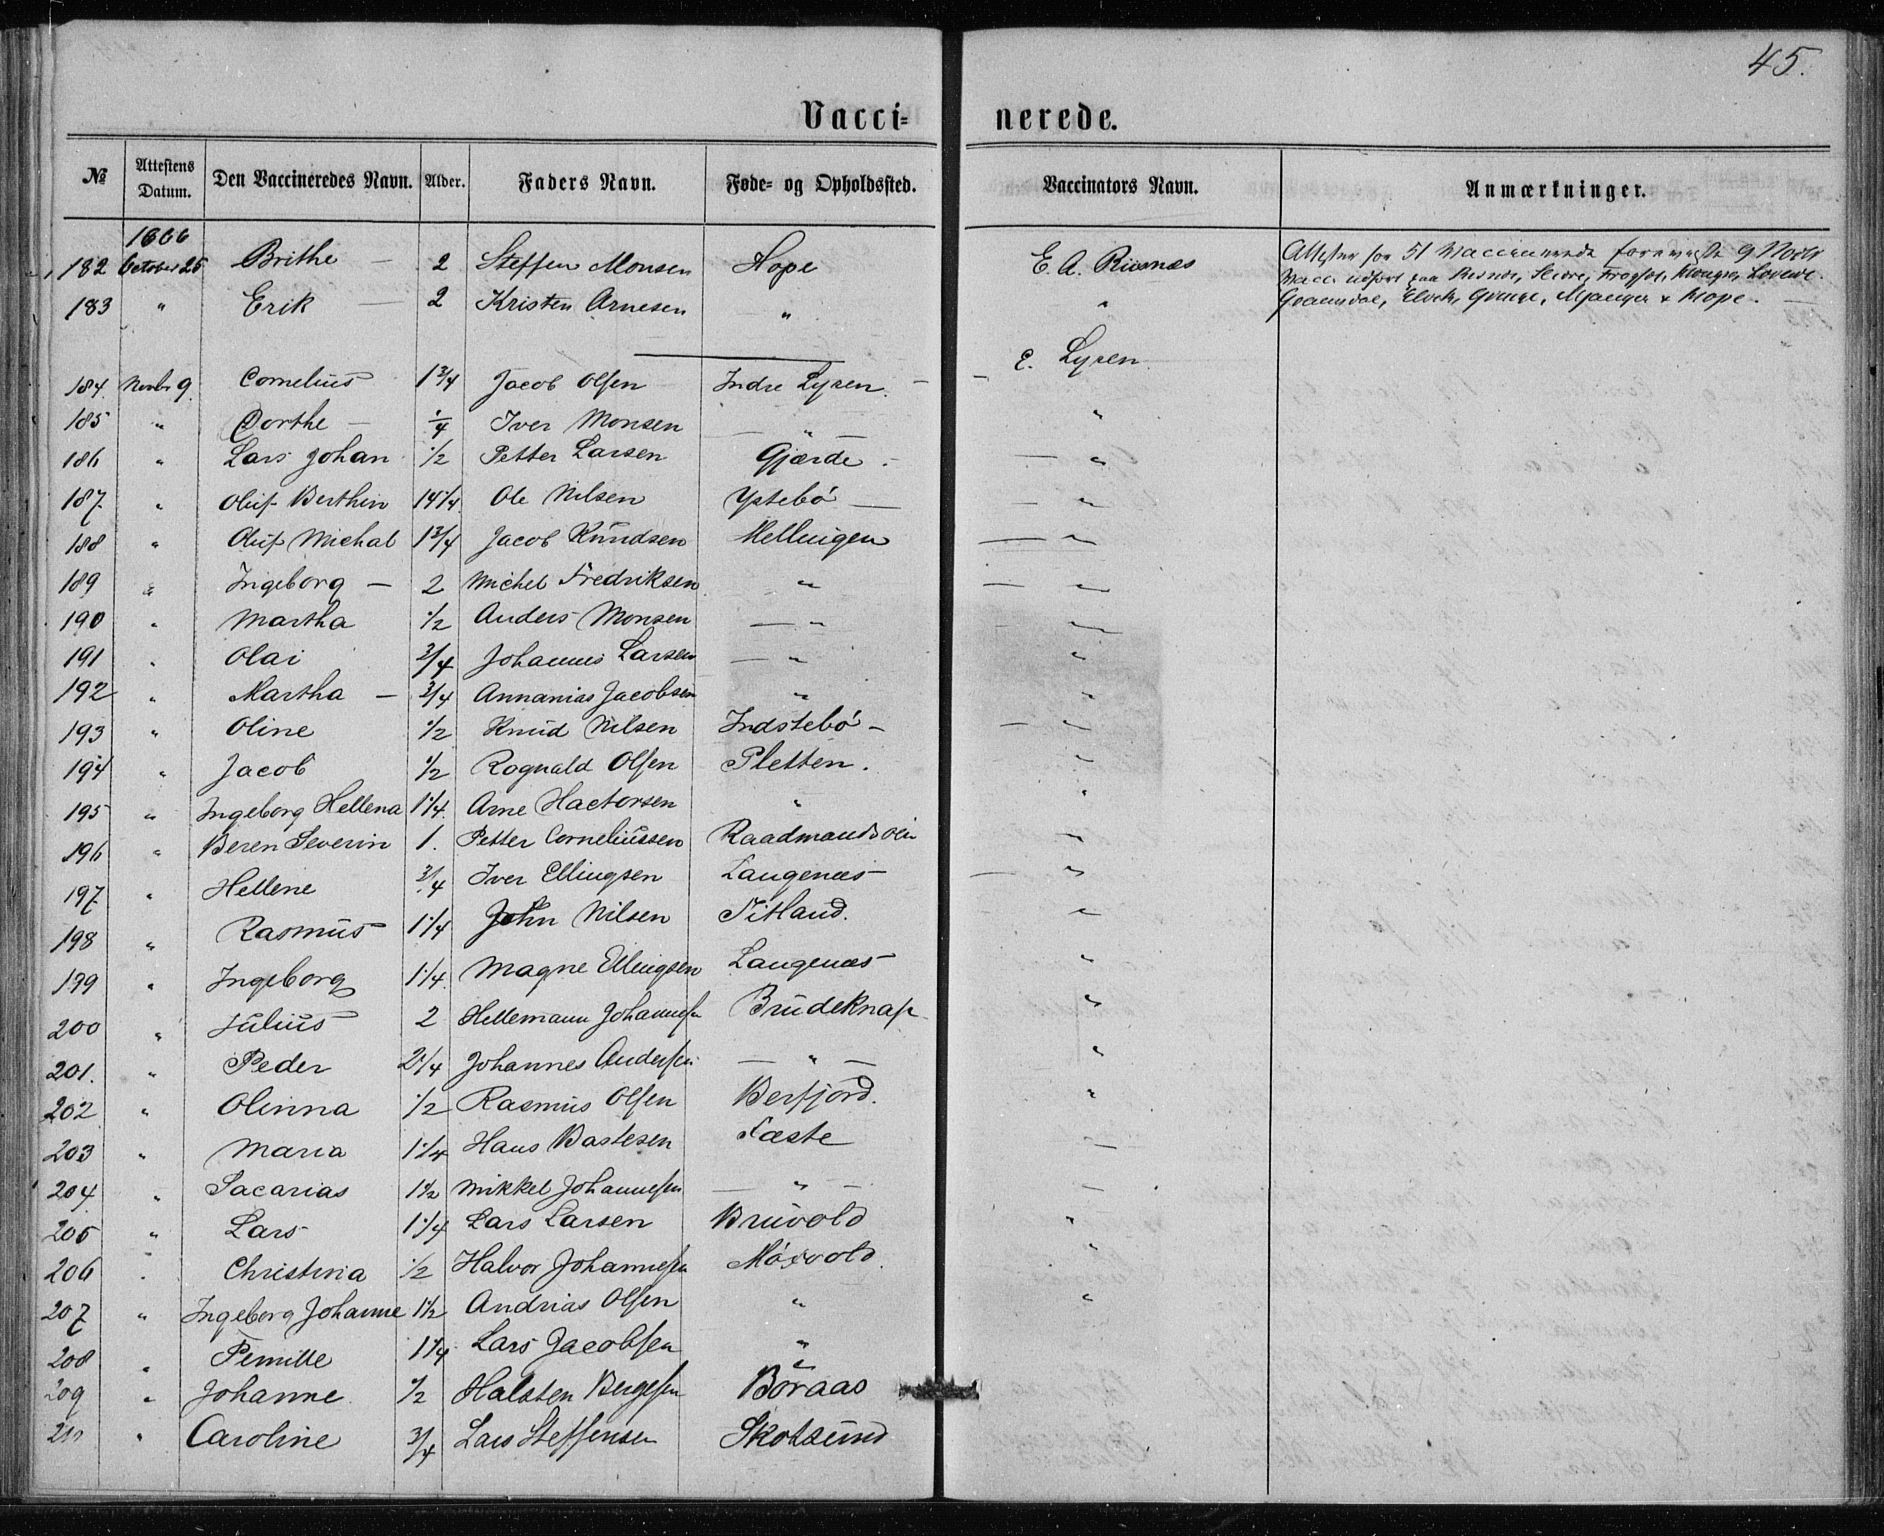 45.
Vacci- nerede.
№ Attestens Datum. Den Vaccineredes Navn. Alder. Faders Navn. Føde- og Opholdssted. Vaccinators Navn. Anmærkninger.
1866
182 October 25 Brithe — 2 Steffen Monsen Hope E. A. Risnæs Attester for 51 Vaccinerede
183 " Erik — 2 Kristen Arnesen " " Mjanger & Hope.
184. Novbr 9. Cornelius 1 3/4 Jacob Olsen Indre Lyren. — E. Lyren
185 " Dorthe — 1/4 Iver Monsen — " — "
186 " Lars Johan 1/2 Petter Larsen Gjærde — — "
187. " Oluf Berthin 14 1/4 Ole Nilsen Ystebö — — "
188 " Oluf Michal 1 3/4 Jacob Knudsen Mellingen — "
189 " Ingeborg — 2 Michel Fredriksen " — "
190 " Martha 1/2 Anders Monsen — " — "
191 " Olai 3/4 Johannes Larsen — " "
192 " Martha — 3/4 Annanias Jacobsen " "
193 " Oline 1/2 Knud Nilsen Indstebö — — "
194 " Jacob 1/2 Rognald Olsen Pletten. "
195 " Ingeborg Hellena 1 1/4 Arne Hactorsen " "
196 " Beren Severin 1. Petter Corneliussen Raadmands "
197. " Hellene 3/4 Iver Ellingsen Langenæs — "
198 " Rasmus 1 1/4 John Nilsen Titland. "
199 " Ingeborg 1 1/4 Magne Ellingsen Langenæs "
200 " Julius 2 Hellemann Johannesen Brudeknap "
201. " Peder 2 1/4 Johannes Andersen — " — "
202 " Olinna 1/2 Rasmus Olsen Berfjord. "
203 " Maria 1 1/4 Hans Bastesen Tæste —
204 " Sacarias 1 1/2 Mikkel Johannesen — " — —
205 " Lars 1 1/4 Lars Larsen Bruvold "
206 " Christina 1/2 Halvor Johannesen "
207 " Ingeborg Johanne 1 1/2 Andrias Olsen " "
208 " Pernille 1 1/4 Lars Jacobsen "
209 " Johanne 1/2 Halsten Bergesen Böraas
210 " Caroline 3/4 Lars Steffensen Skotsund